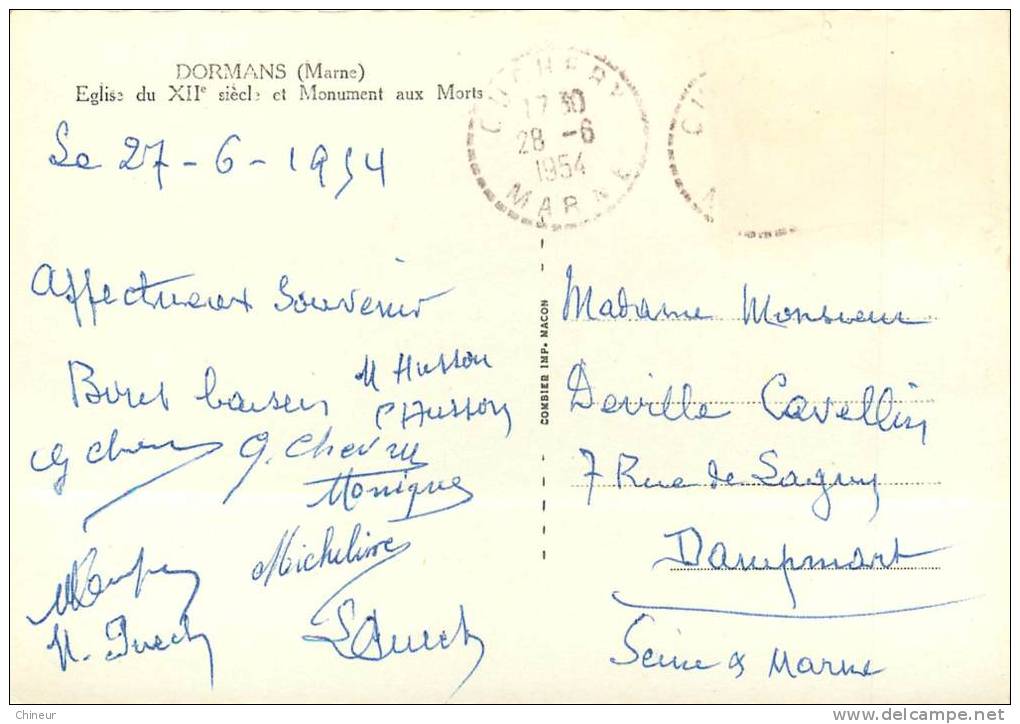 DORMANS (Marne)
Eglise du XIIe siècle et Monument aux Morts
CUCHERY
17 30
28 -6
1954
MARNE
Le 27-6-1954
Affectueux Souvenir
Bons baisers M Husson
P Husson
G. Chevry
Monique
Micheline
COMBIER IMP. MACON
Madame Monsieur
Deville Cavellin
7 Rue de Lagny
Dampmart
Seine & Marne
Chineur
www.delcampe.net